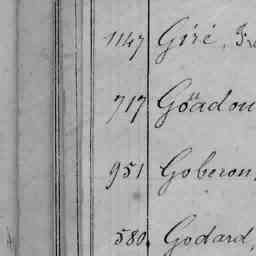 1147 Giré, Fr
717 Göadou
951 Goberon,
580. Godard,